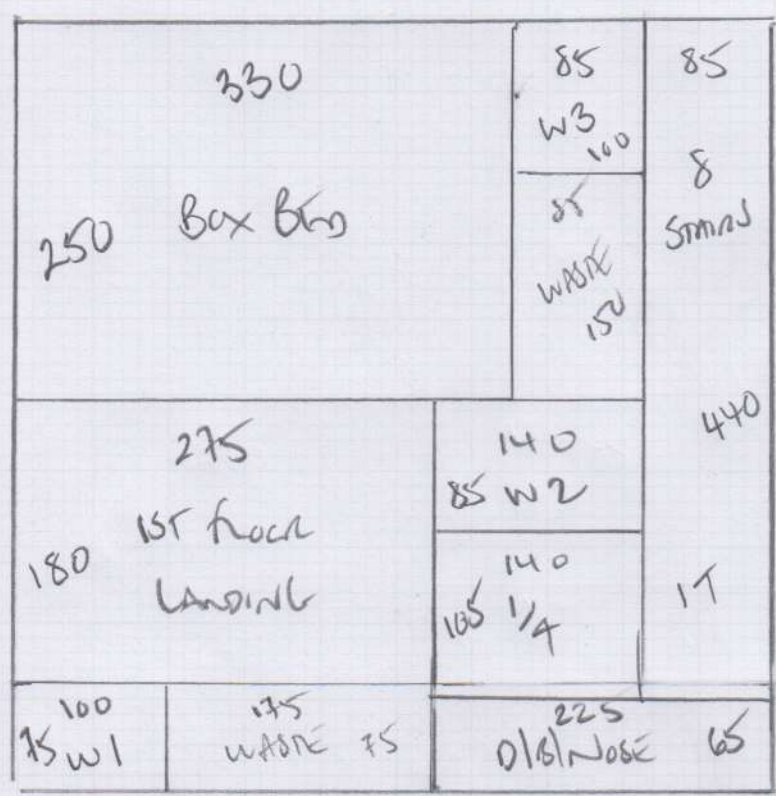 330
250 BOX BED
85
W3
100
85
WASTE
150
85
8
STAIRS
440
1T
275
1ST FLOOR
180
LANDING
140
85 W2
140
105 1/4
100
75 W1
175
WASTE 75
225
D/B/NOSE 65